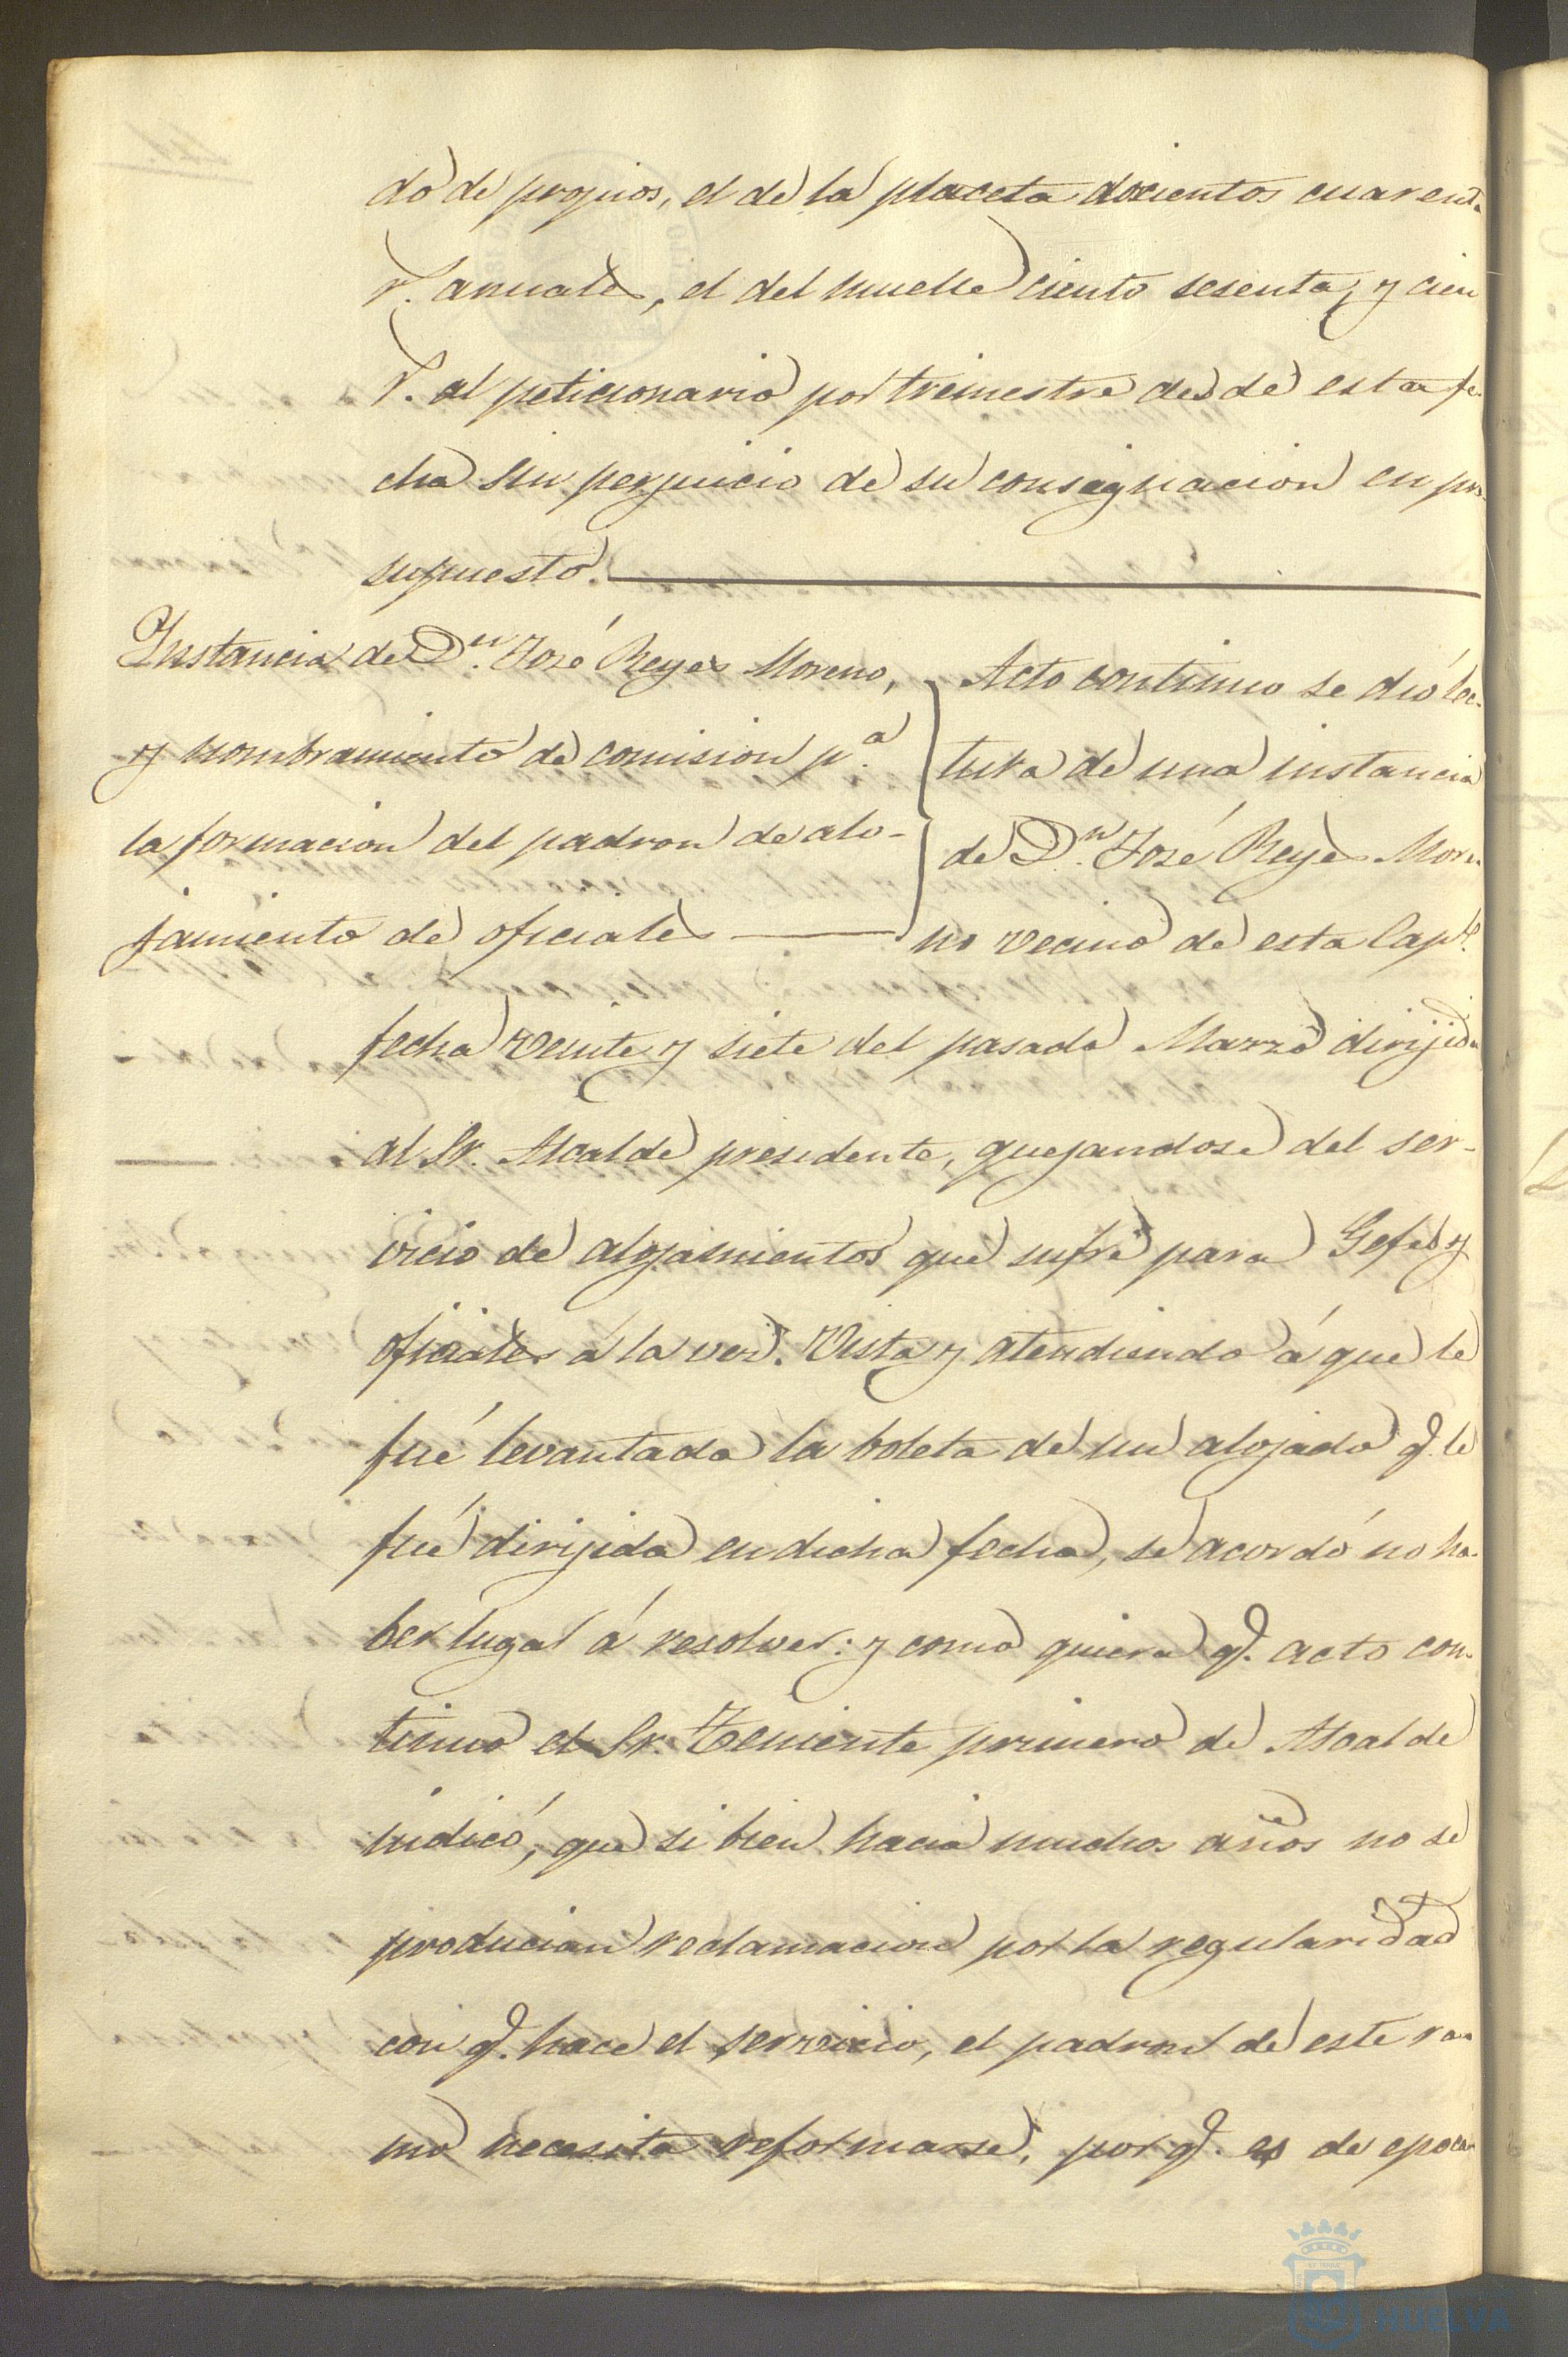 do de propios, el de la placeta docientos cuarenta
r.⁵ anuales, el del muelle ciento sesenta, y cien
r.⁵ al peticionario por trimestre desde esta fe-
cha sin perjuicio de su consignacion en pre-
supuesto.
Instancia de D.ⁿ José Reyes Moreno,
y nombramiento de comision p.ª
la formacion del padron de alo-
jamiento de oficiales
Acto continuo se dió lec-
tura de una instancia
de D.ⁿ José Reyes More-
no vecino de esta Cap.ˡ
fecha veinte y siete del pasado Marzo dirijida
al Sr. Alcalde presidente, quejandose del ser-
vicio de alojamientos que sufre para Gefes y
oficiales á la vez. Vista y atendiendo á que le
fué levantada la boleta de un alojado q. le
fué dirijida en dicha fecha, se acordó no ha-
ber lugar á resolver: y como quiera q. acto con-
tinuo el Sr. Teniente primero de Alcalde
indicó, que si bien hacia muchos años no se
producian reclamacion por la regularidad
con q. hace el servicio, el padron de este ra-
mo necesita reformarse, por q. es de epoca
HUELVA